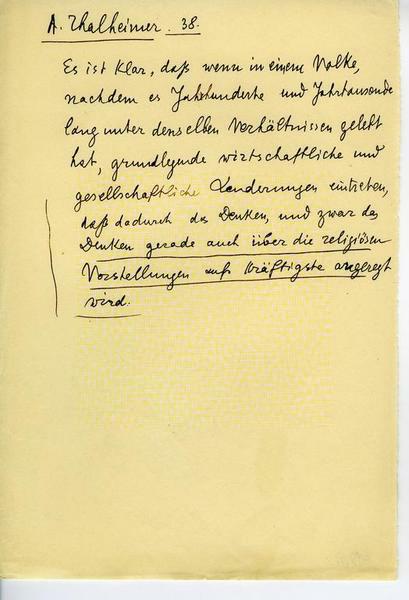 A. Thalheimer. 38.
Es ist klar, daß wenn in einem Volke,
nachdem es Jahrhunderte und Jahrtausende
lang unter denselben Verhältnissen gelebt
hat, grundlegende wirtschaftliche und
gesellschaftliche Aenderungen eintreten,
daß dadurch das Denken, und zwar das
Denken gerade auch über die religiösen
Vorstellungen aufs kräftigste angeregt
wird.